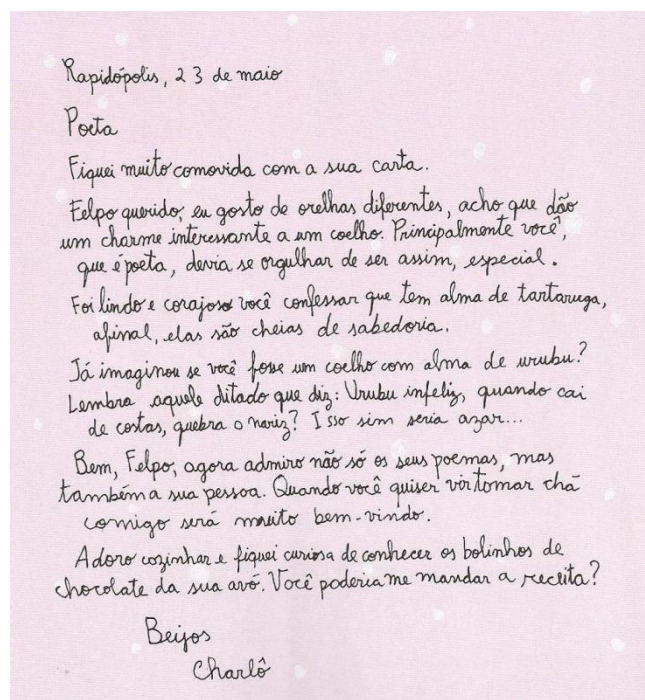 Rapidópolis, 23 de maio
Poeta
Fiquei muito comovida com a sua carta.
Felpo querido, eu gosto de orelhas diferentes, acho que dão
um charme interessante a um coelho. Principalmente você,
que é poeta, devia se orgulhar de ser assim, especial.
Foi lindo e corajoso você confessar que tem alma de tartaruga,
afinal, elas são cheias de sabedoria.
Já imaginou se você fosse um coelho com alma de urubu?
Lembra aquele ditado que diz: Urubu infeliz, quando cai
de costas, quebra o nariz? Isso sim seria azar...
Bem, Felpo, agora admiro não só os seus poemas, mas
também a sua pessoa. Quando você quiser vir tomar chá
comigo será muito bem-vindo.
Adoro cozinhar e fiquei curiosa de conhecer os bolinhos de
chocolate da sua avó. Você poderia me mandar a receita?
Beijos
Charlô